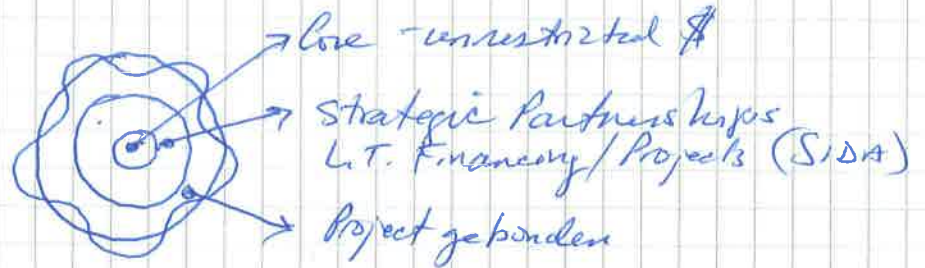 Core - unrestricted $
Strategic Partnerships
L.T. Financing/Projects (SIDA)
Project gebonden